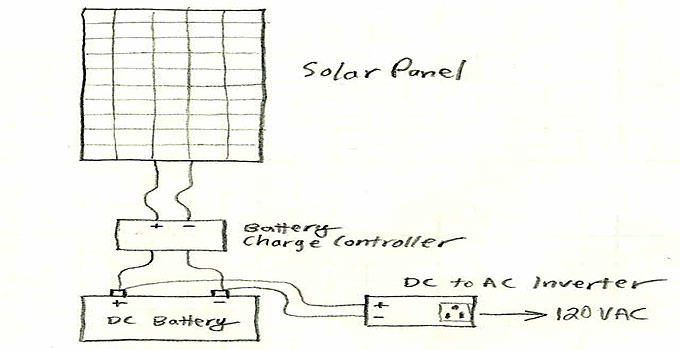 Solar Panel
+ -
Battery
Charge Controller
DC to AC Inverter
+ -
+
-
120 VAC
DC Battery